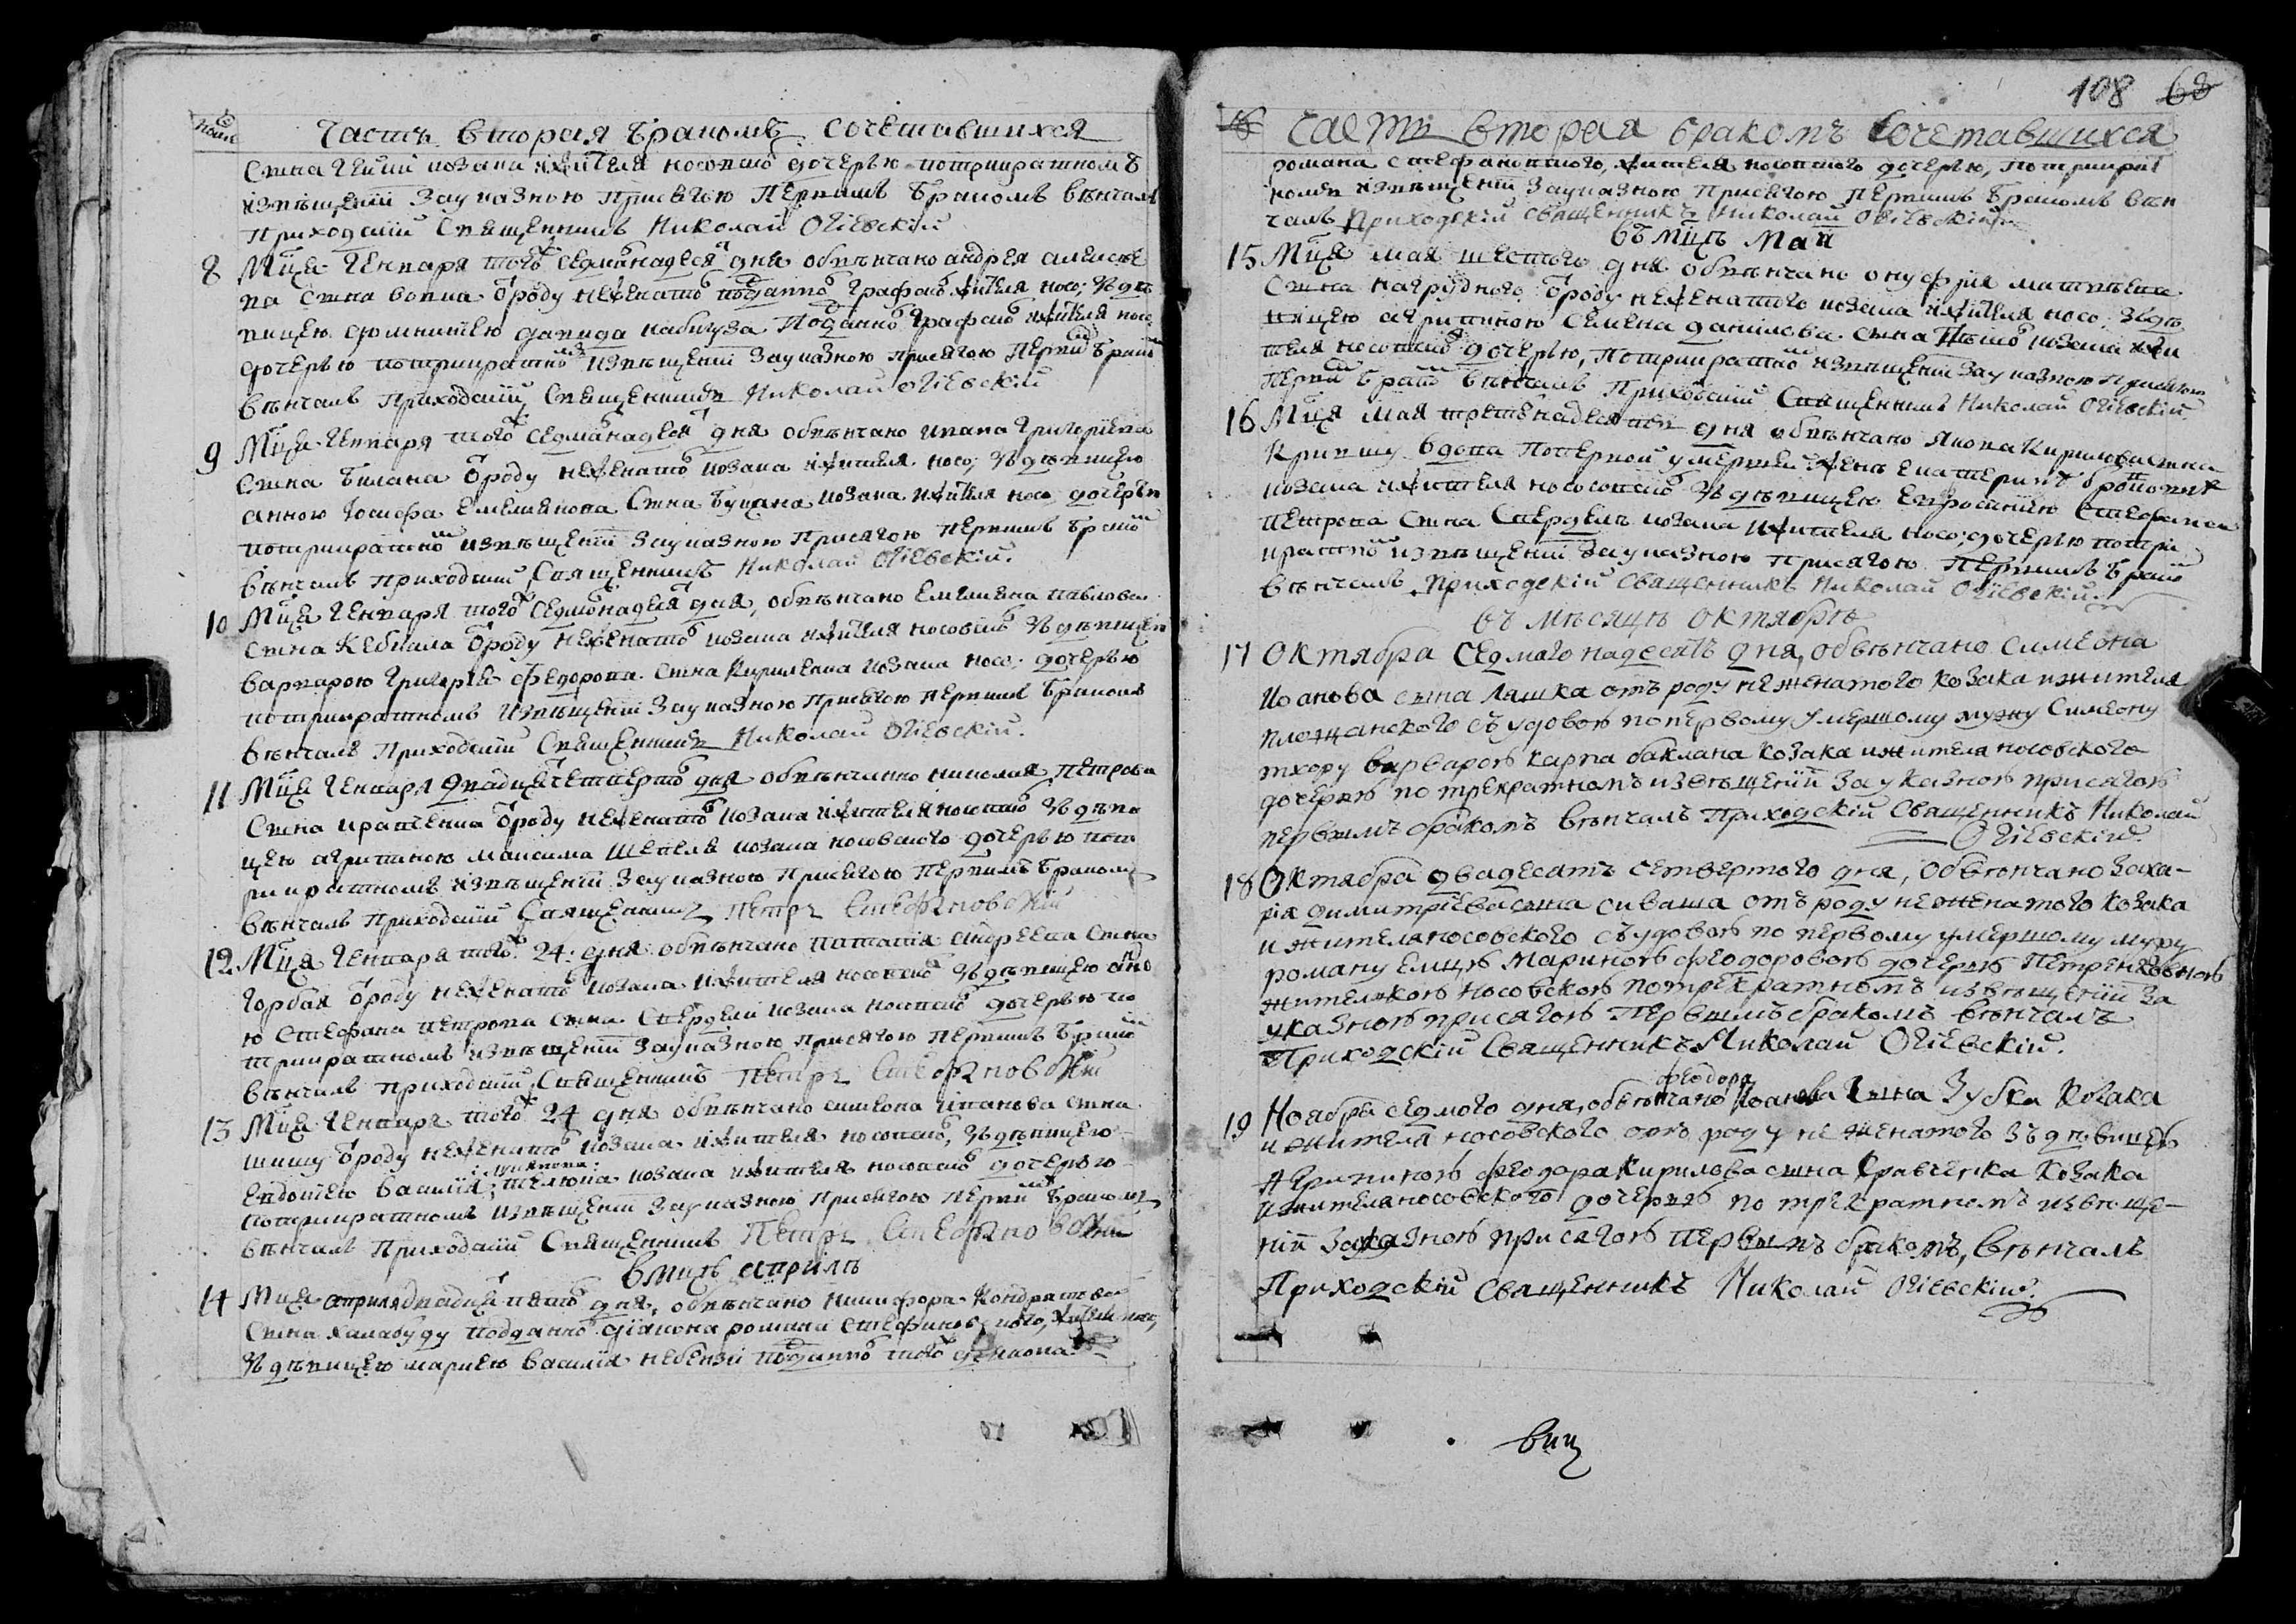 часть вторая бракомъ сочетавшихся
сина козака и жителя носовско дочерью потрикратномъ
извѣщеніи за указною присягою первимъ бракомъ вѣнчалъ
приходскій священникъ Николай Огіевскій
8 Мца генваря того седмонадесят дня обвѣнчано андрея алексѣе
ва сина вовка ѿроду неженато подданно графско жителя носо: зъдѣ
вицею домникіею давида кабигуза подданно графско жителя носо
дочерью потрикратно извѣщеніи за указною присягою перви брако
вѣнчалъ приходскій священникъ Николай Огіевскій
9 Мца генваря того седмонадесят дня обвѣнчано ивана григоріева
сина билана ѿроду неженато козака и жителя носо; зъдѣвицею
анною іосифа емелянова сина буцана козака и жителя носо дочерью
потрикратно извѣщеніи за указною присягою первимъ брако
вѣнчалъ приходскій священникъ Николай Огіевскій.
10 Мца генваря того седмонадесят дня, обвѣнчано емеляна павлова
сина кебкала ѿроду неженато козака и жителя носовско зъдѣвицею
варварою григорія федорова сина кириленка козака носо: дочерью
потрикратномъ извѣщеніи за указною присягою первимъ бракомъ
вѣнчалъ приходскій священникъ Николай Огіевскій.
11 Мца генваря двадцят четверто дня обвѣнчано николая петрова
сина кравченка ѿроду неженато козака и жителя носовско зъдѣви
цею агрипиною максима шепеля козака носовского дочерью пот
рикратномъ извѣщеніи за указною присягою первимъ бракомъ
вѣнчалъ приходскій священникъ Петръ Стефановскій
12 Мца генваря того 24. дня обвѣнчано андреева сина
горбая ѿроду неженато козака и жителя носовско зъдѣвицею
ю стефана петрова сина сердеги козака носовско дочерью по
трикратномъ извѣщеніи за указною присягою первимъ брако
вѣнчалъ приходскій священникъ Петръ Стефановскій
13 Мца генваря того 24 дня обвѣнчано симеона іванова сина
шишу ѿроду неженато козака и жителя носовско, зъдѣвицею
евдокіею василія козака и жителя носовско дочерью
потрикратномъ извѣщеніи за указною присягою перви бракомъ
вѣнчалъ приходскій священникъ Петръ Стефановскій
в мцѣ априлѣ
14 Мца априля двадцят пято дня, обвѣнчано никифора кондратева
сина халабуду подданно діакона романа стефановско, жителя носо,
зъдѣвицею маріею василія небензи подданно того діакона
108 68
часть вторая бракомъ сочетавшихся
романа стефановского, жителя носовского дочерью, потрикрат
номъ извѣщеніи за указною присягою первимъ бракомъ вѣн
чалъ приходскій священникъ Николай Огіевскій
въ мцѣ маи
15 Мца мая шестого дня обвѣнчано онуфрія матвѣева
сина нагрудного ѿроду неженатого козака и жителя носо: зъдѣ
вицею агрипиною семена данилова сина козака и жи
теля носовско дочерью, потрикратно извѣщеніи за указною присягою
перви брако вѣнчалъ приходскій священникъ Николай Огіевскій
16 Мца мая третёнадесят дня обвѣнчано якова кирилова сина
крившу вдова по первой умершей женѣ екатеринѣ
козака и жителя носовско зъдѣвицею евросиніею стефана
петрова сина сердеги козака и жителя носо: дочерью потри
кратно извѣщеніи за указною присягою первимъ брако
вѣнчалъ приходскій священникъ Николай Огіевскій
въ мѣсяцѣ октябрѣ
17 Октября седмаго надесять дня, обвѣнчано симеона
иоанова сына ляшка отъ роду неженатого козака и жителя
плосчанского съ удовою по первому умершому мужу симеону
тхору варварою карпа баклана козака и жителя носовского
дочерью по трекратномъ извѣщеніи за указною присягою
первымъ бракомъ вѣнчалъ приходскій священникъ Николай
Огіевскій
18 Октября двадесятъ четвертого дня, обвѣнчано заха-
рія димитріева сына сиваша отъ роду неженатого козака
и жителя носовского съ удовою по первому умершому мужу
роману емцѣ мариною феодоровою дочерью петренковною
жителкою носовскою по трекратномъ извѣщеніи за
указною присягою первымъ бракомъ вѣнчалъ
приходскій священникъ Николай Огіевскій.
феодора
19 Ноября седмого дня, обвѣнчано иоанова сына зубка козака
и жителя носовского отъ роду неженатого зъ дѣвицею
агрипиною феодора кирилова сына кравченка козака
и жителя носовского дочерью по трекратномъ извѣще-
ніи за указною присягою первымъ бракомъ, вѣнчалъ
приходскій священникъ Николай Огіевскій.